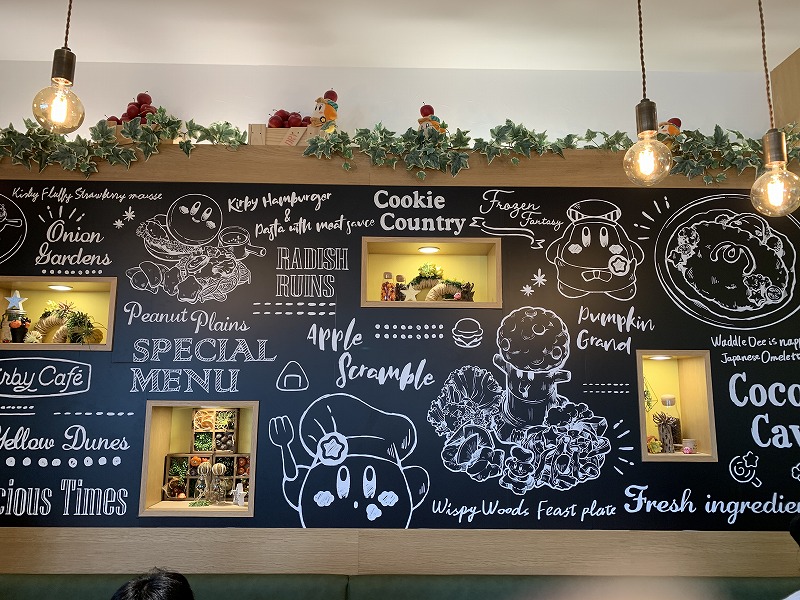 Kirby Fluffy Strawberry mousse
Onion
Gardens
Kirby Hamburger
&
Pasta with meat sauce
RADISH
RUINS
Cookie
Country
Frozen
Fantasy
Peanut Plains
SPECIAL
MENU
Apple
Scramble
Pumpkin
Grand
Waddle Dee is napp
Japanese Omelet
irby Café
Yellow Dunes
cious Times
Wispy Woods Feast plate
Coco
Cav
Fresh ingredien